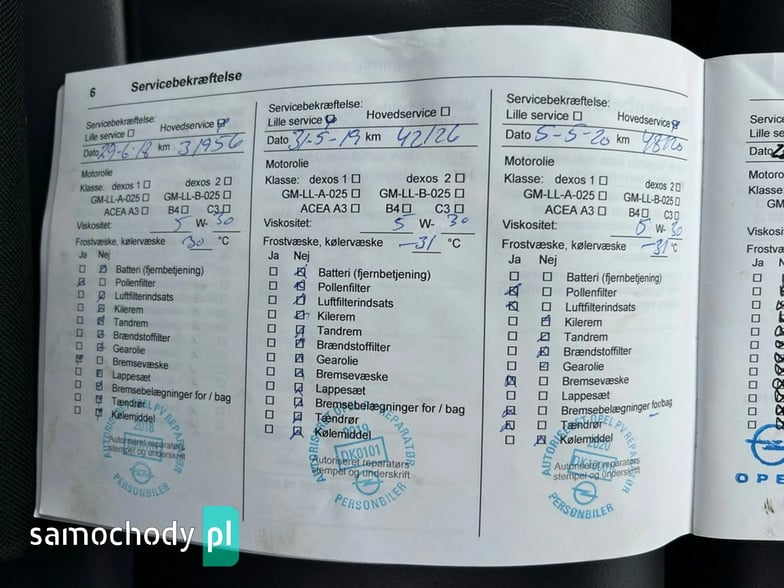 6 Servicebekræftelse
Servicebekræftelse:
Lille service Hovedservice
Dato 29-6-18 km 31956
Motorolie
Klasse: dexos 1 dexos 2
GM-LL-A-025 GM-LL-B-025
ACEA A3 B4 C3
Viskositet: 5 W- 30
Frostvæske, kølervæske 30 °C
Ja Nej
Batteri (fjernbetjening)
Pollenfilter
Luftfilterindsats
Kilerem
Tandrem
Brændstoffilter
Gearolie
Bremsevæske
Lappesæt
Bremsebelægninger for / bag
Tændrør
Kølemiddel
AUTORISERET OPEL PV REPARATØR
2018
Autoriseret reparatørs
stempel og underskrift
PERSONBILER
Servicebekræftelse:
Lille service Hovedservice
Dato 31-5-19 km 42126
Motorolie
Klasse: dexos 1 dexos 2
GM-LL-A-025 GM-LL-B-025
ACEA A3 B4 C3
Viskositet: 5 W- 30
Frostvæske, kølervæske -31 °C
Ja Nej
Batteri (fjernbetjening)
Pollenfilter
Luftfilterindsats
Kilerem
Tandrem
Brændstoffilter
Gearolie
Bremsevæske
Lappesæt
Bremsebelægninger for / bag
Tændrør
Kølemiddel
AUTORISERET OPEL PV REPARATØR
2019
DK0101
Autoriseret reparatørs
stempel og underskrift
PERSONBILER
Servicebekræftelse:
Lille service Hovedservice
Dato 5-5-20 km
Motorolie
Klasse: dexos 1 dexos 2
GM-LL-A-025 GM-LL-B-025
ACEA A3 B4 C3
Viskositet: 5 W- 30
Frostvæske, kølervæske -31 °C
Ja Nej
Batteri (fjernbetjening)
Pollenfilter
Luftfilterindsats
Kilerem
Tandrem
Brændstoffilter
Gearolie
Bremsevæske
Lappesæt
Bremsebelægninger for/bag
Tændrør
Kølemiddel
AUTORISERET OPEL PV REPARATØR
2020
Autoriseret reparatørs
stempel og underskrift
PERSONBILER
samochody pl